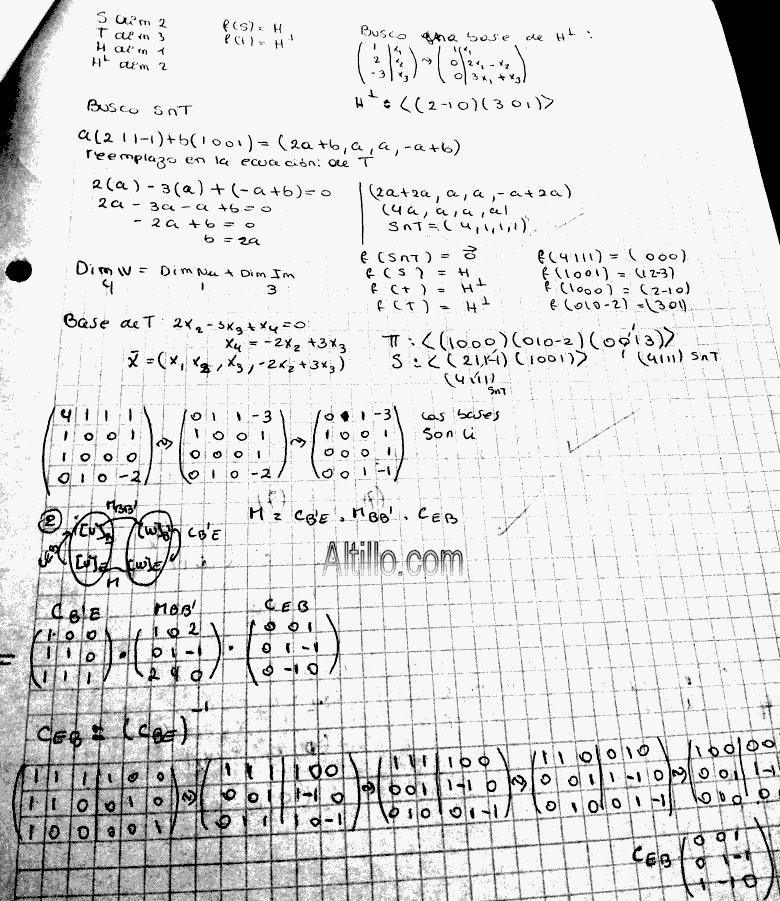 S dim 2
T dim 3
H dim 1
H⊥ dim 2
f(S) = H
f(T) = H⊥
Busco una base de H⊥ :
( 1 | x₁
2 | x₂
-3 | x₃ ) ⇝ ( 1 | x₁
0 | 2x₁ - x₂
0 | 3x₁ + x₃ )
H⊥ = <(2 -1 0) (3 0 1)>
Busco S∩T
a(2 1 1 -1) + b(1 0 0 1) = (2a+b, a, a, -a+b)
reemplazo en la ecuación: de T
2(a) - 3(a) + (-a+b) = 0
2a - 3a - a + b = 0
- 2a + b = 0
b = 2a
(2a+2a, a, a, -a+2a)
(4a, a, a, a)
S∩T = (4,1,1,1)
f(S∩T) = 0⃗
f(S) = H
f(T) = H⊥
f(T) = H⊥
f(4111) = (000)
f(1001) = (12-3)
f(1000) = (2-10)
f(010-2) = (301)
Dim W = Dim Nu + Dim Im
4 1 3
Base de T: 2x₂ - 3x₃ + x₄ = 0
x₄ = -2x₂ + 3x₃
x̄ = (x₁, x₂, x₃, -2x₂ + 3x₃)
T : <(1000) (010-2) (0013)>
S : <(211-1) (1001)> (4111) S∩T
(4111) S∩T
( 4 1 1 1
1 0 0 1
1 0 0 0
0 1 0 -2 ) ⇝ ( 0 1 1 -3
1 0 0 1
0 0 0 1
0 1 0 -2 ) ⇝ ( 0 1 -3
1 0 0 1
0 0 0 1
0 0 1 -1 )
Las bases
son li
② M BB'
[v]B [w]B' C B'E
[v]E [w]E
M
M(f) = C B'E . M(f) BB' . C EB
Altillo.com
C B'E M BB' C EB
= ( 1 0 0
1 1 0
1 1 1 ) · ( 1 0 2
0 1 -1
2 4 0 ) · ( 0 0 1
0 1 -1
0 -1 0 )
C EB = (C BE)⁻¹
( 1 1 1 | 1 0 0
1 1 0 | 0 1 0
1 0 0 | 0 0 1 ) ⇝ ( 1 1 1 | 1 0 0
0 0 1 | 1 -1 0
0 1 1 | 1 0 -1 ) ⇝ ( 1 1 1 | 1 0 0
0 0 1 | 1 -1 0
0 1 0 | 0 1 -1 ) ⇝ ( 1 1 0 | 0 1 0
0 0 1 | 1 -1 0
0 1 0 | 0 1 -1 ) ⇝ ( 1 0 0 | 0 0
0 0 1 | 1 -1
0 1 0 | 0
C EB ( 0 0 1
0 1 -1
1 -1 0 )